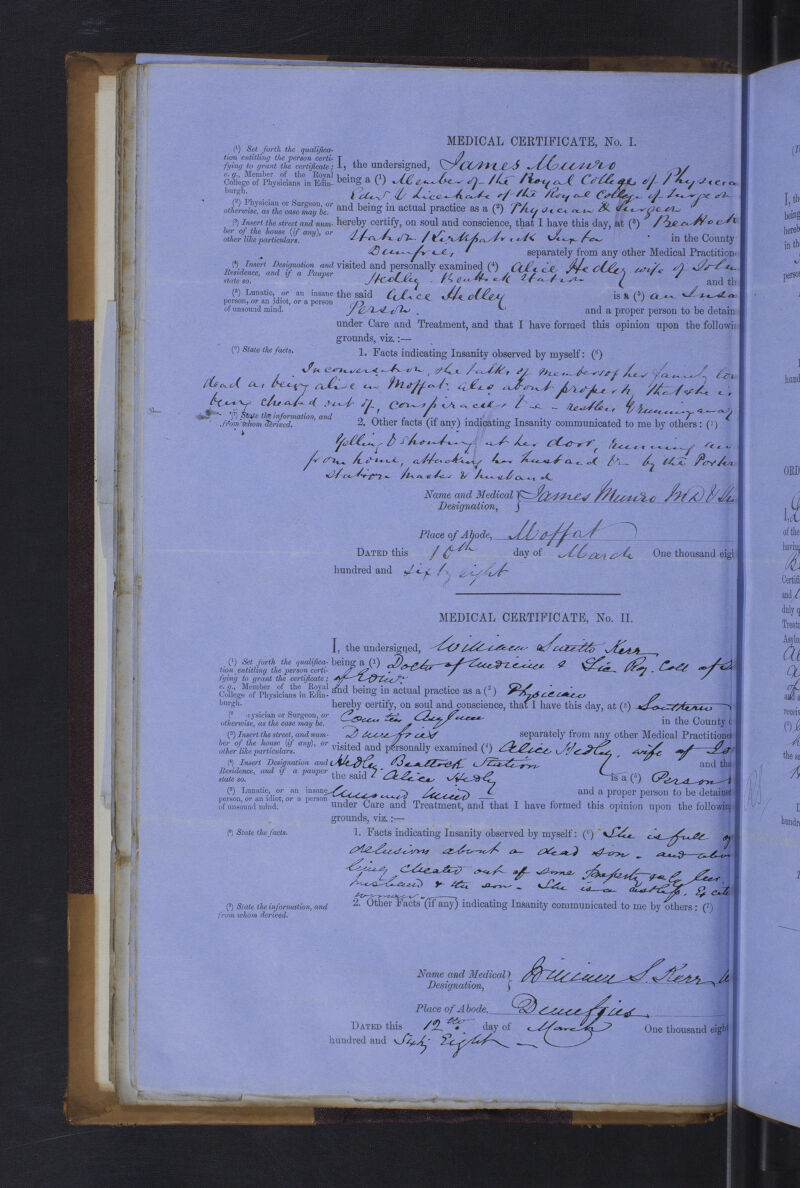 MEDICAL CERTIFICATE, No. I.
(¹) Set forth the qualifica-
tion entitling the person certi-
fying to grant the certificate;
e. g., Member of the Royal
College of Physicians in Edin-
burgh.
(²) Physician or Surgeon, or
otherwise, as the case may be.
(³) Insert the street and num-
ber of the house (if any), or
other like particulars.
(⁴) Insert Designation and
Residence, and if a Pauper
state so.
(⁵) Lunatic, or an insane
person, or an idiot, or a person
of unsound mind.
(⁶) State the facts.
(⁷) State the information, and
from whom derived.
I, the undersigned, James Munro
being a (¹) Member of the Royal College of Physicia
Edinr & Licentiate of the Royal College of Surgeon
and being in actual practice as a (²) Physician & Surgeon
hereby certify, on soul and conscience, that I have this day, at (³) Beattock
Station Kirkpatrick Juxta in the County
Dumfries separately from any other Medical Practition
visited and personally examined (⁴) Alice Hedley wife of John
Hedley Beattock Station and th
the said Alice Hedley is a (⁵) an Insa
Person. and a proper person to be detain
under Care and Treatment, and that I have formed this opinion upon the followi
grounds, viz.:—
1. Facts indicating Insanity observed by myself: (⁶)
In conversation, she talks of members of her family lon
dead as being alive in Moffat. also about property that she is
being cheated out of, conspiracies &c – restless & running away
2. Other facts (if any) indicating Insanity communicated to me by others: (⁷)
Yelling & shouting at her door, running
from home, attacking her husband &c – by the Porter
Station Master & husband
Name and Medical Designation, James Munro M.D &
Place of Abode, Moffat
DATED this 10th day of March One thousand eigh
hundred and sixty eight
MEDICAL CERTIFICATE, No. II.
(¹) Set forth the qualifica-
tion entitling the person certi-
fying to grant the certificate;
e. g., Member of the Royal
College of Physicians in Edin-
burgh.
(² ysician or Surgeon, or
otherwise, as the case may be.
(³) Insert the street, and num-
ber of the house (if any), or
other like particulars.
(⁴) Insert Designation and
Residence, and if a pauper
state so.
(⁵) Lunatic, or an insane
person, or an idiot, or a person
of unsound mind.
(⁶) State the facts.
(⁷) State the information, and
from whom derived.
I, the undersigned, William Kerr
being a (¹) Doctor of Medicine & Lic. Roy. Coll of S
of Edinr.
and being in actual practice as a (²) Physician
hereby certify, on soul and conscience, that I have this day, at (³) Southern
Counties Asylum in the County
Dumfries separately from any other Medical Practitione
visited and personally examined (⁴) Alice Hedley. wife of Jo
Hedley. Beattock Station and tha
the said Alice Hedley is a (⁵) Person
Unsound Mind and a proper person to be detaine
under Care and Treatment, and that I have formed this opinion upon the followin
grounds, viz.:—
1. Facts indicating Insanity observed by myself: (⁶) She is full of
delusions about a dead son – and abou
being cheated out of some property by her
husband & the son – She is a restless. Excita
woman –
2. Other Facts (if any) indicating Insanity communicated to me by others: (⁷)
Name and Medical Designation, William S. Kerr
Place of Abode, Dumfries
DATED this 12th day of March One thousand eigh
hundred and Sixty Eight